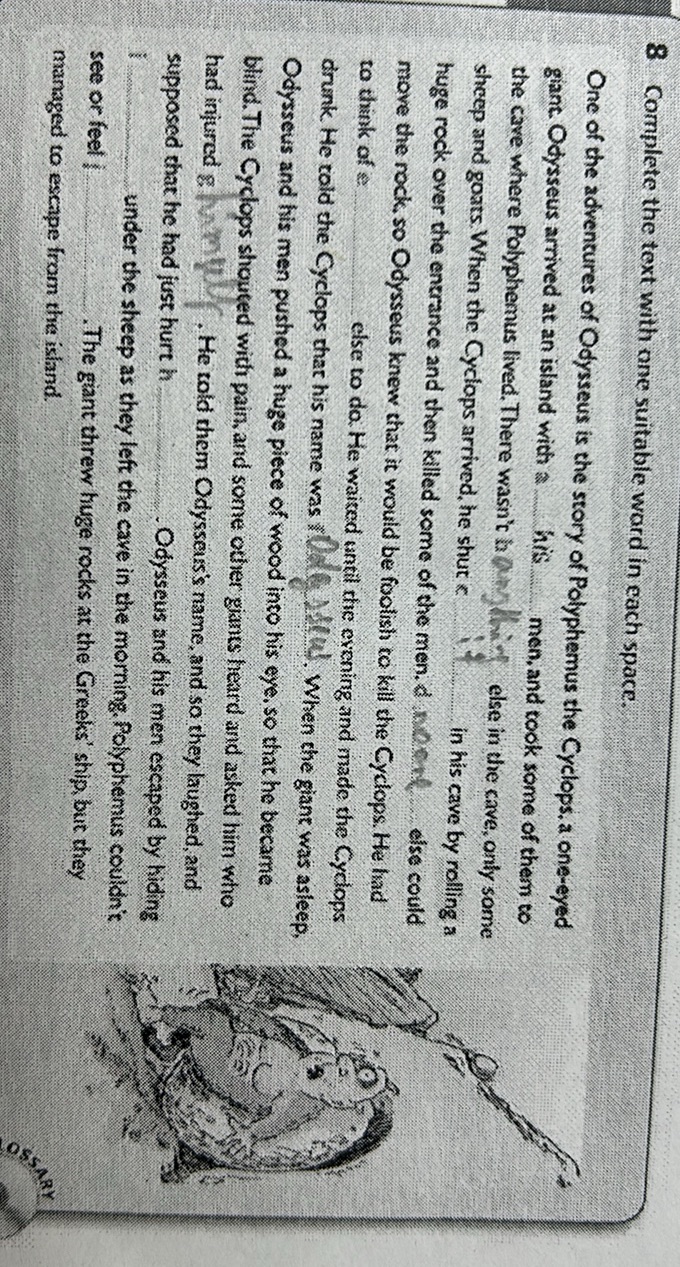 8 Complete the text with one suitable word in each space.
One of the adventures of Odysseus is the story of Polyphemus the Cyclops, a one-eyed
giant. Odysseus arrived at an island with a his men, and took some of them to
the cave where Polyphemus lived. There wasn't b anything else in the cave, only some
sheep and goats. When the Cyclops arrived, he shut c it in his cave by rolling a
huge rock over the entrance and then killed some of the men. d else could
move the rock, so Odysseus knew that it would be foolish to kill the Cyclops. He had
to think of e else to do. He waited until the evening and made the Cyclops
drunk. He told the Cyclops that his name was f Odysseus. When the giant was asleep,
Odysseus and his men pushed a huge piece of wood into his eye, so that he became
blind. The Cyclops shouted with pain, and some other giants heard and asked him who
had injured g himself. He told them Odysseus's name, and so they laughed, and
supposed that he had just hurt h . Odysseus and his men escaped by hiding
i under the sheep as they left the cave in the morning. Polyphemus couldn't
see or feel j . The giant threw huge rocks at the Greeks' ship, but they
managed to escape from the island.
OSSARY